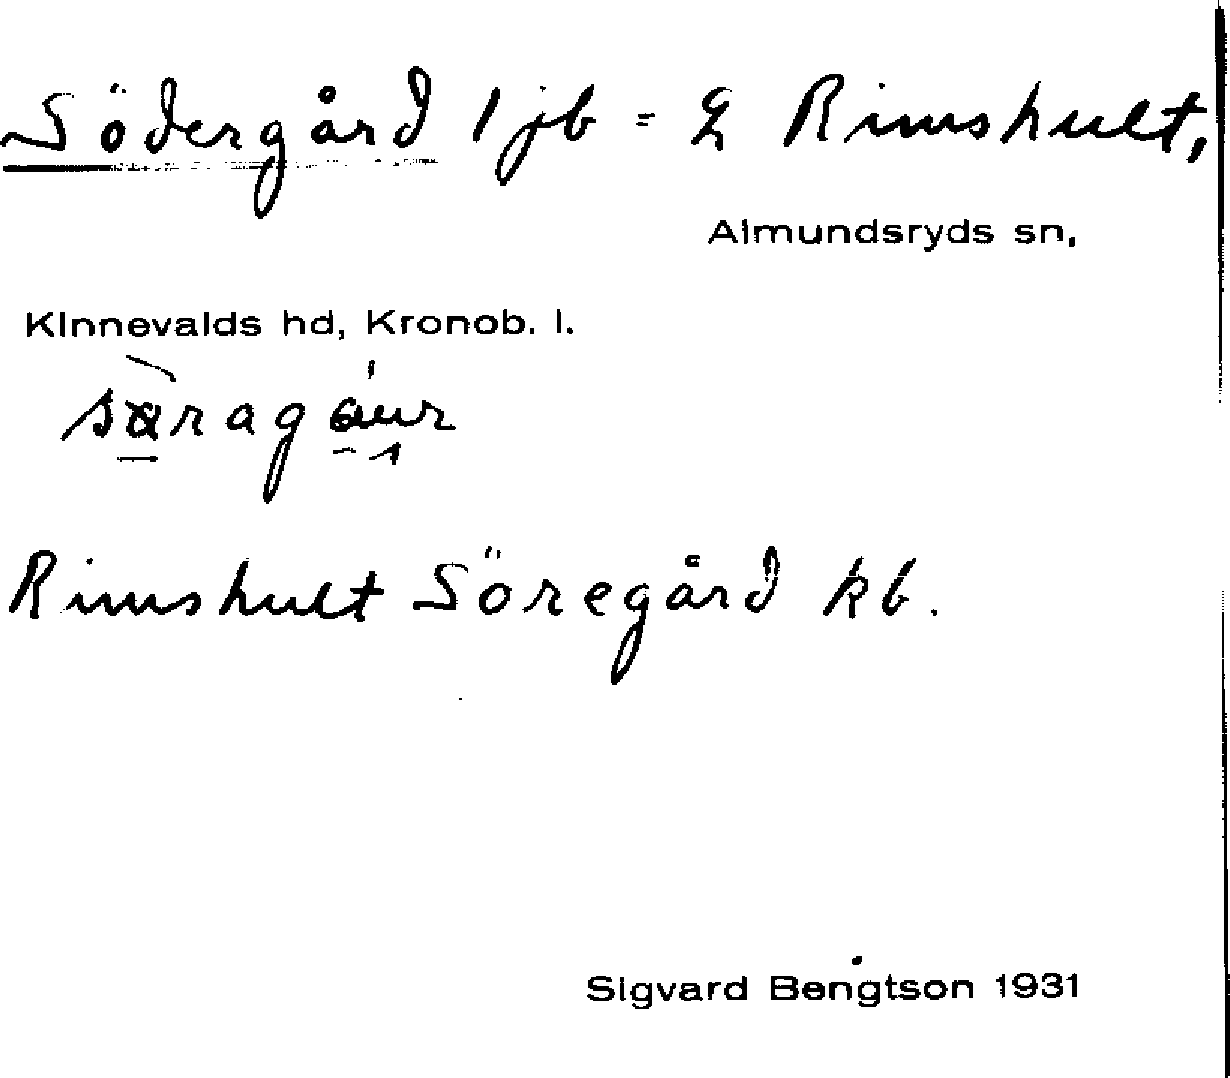 Södergård 1 jb = 2 Rimshult,
Almundsryds sn,
Kinnevalds hd, Kronob. l.
Rimshult Söregård kb.
Sigvard Bengtson 1931